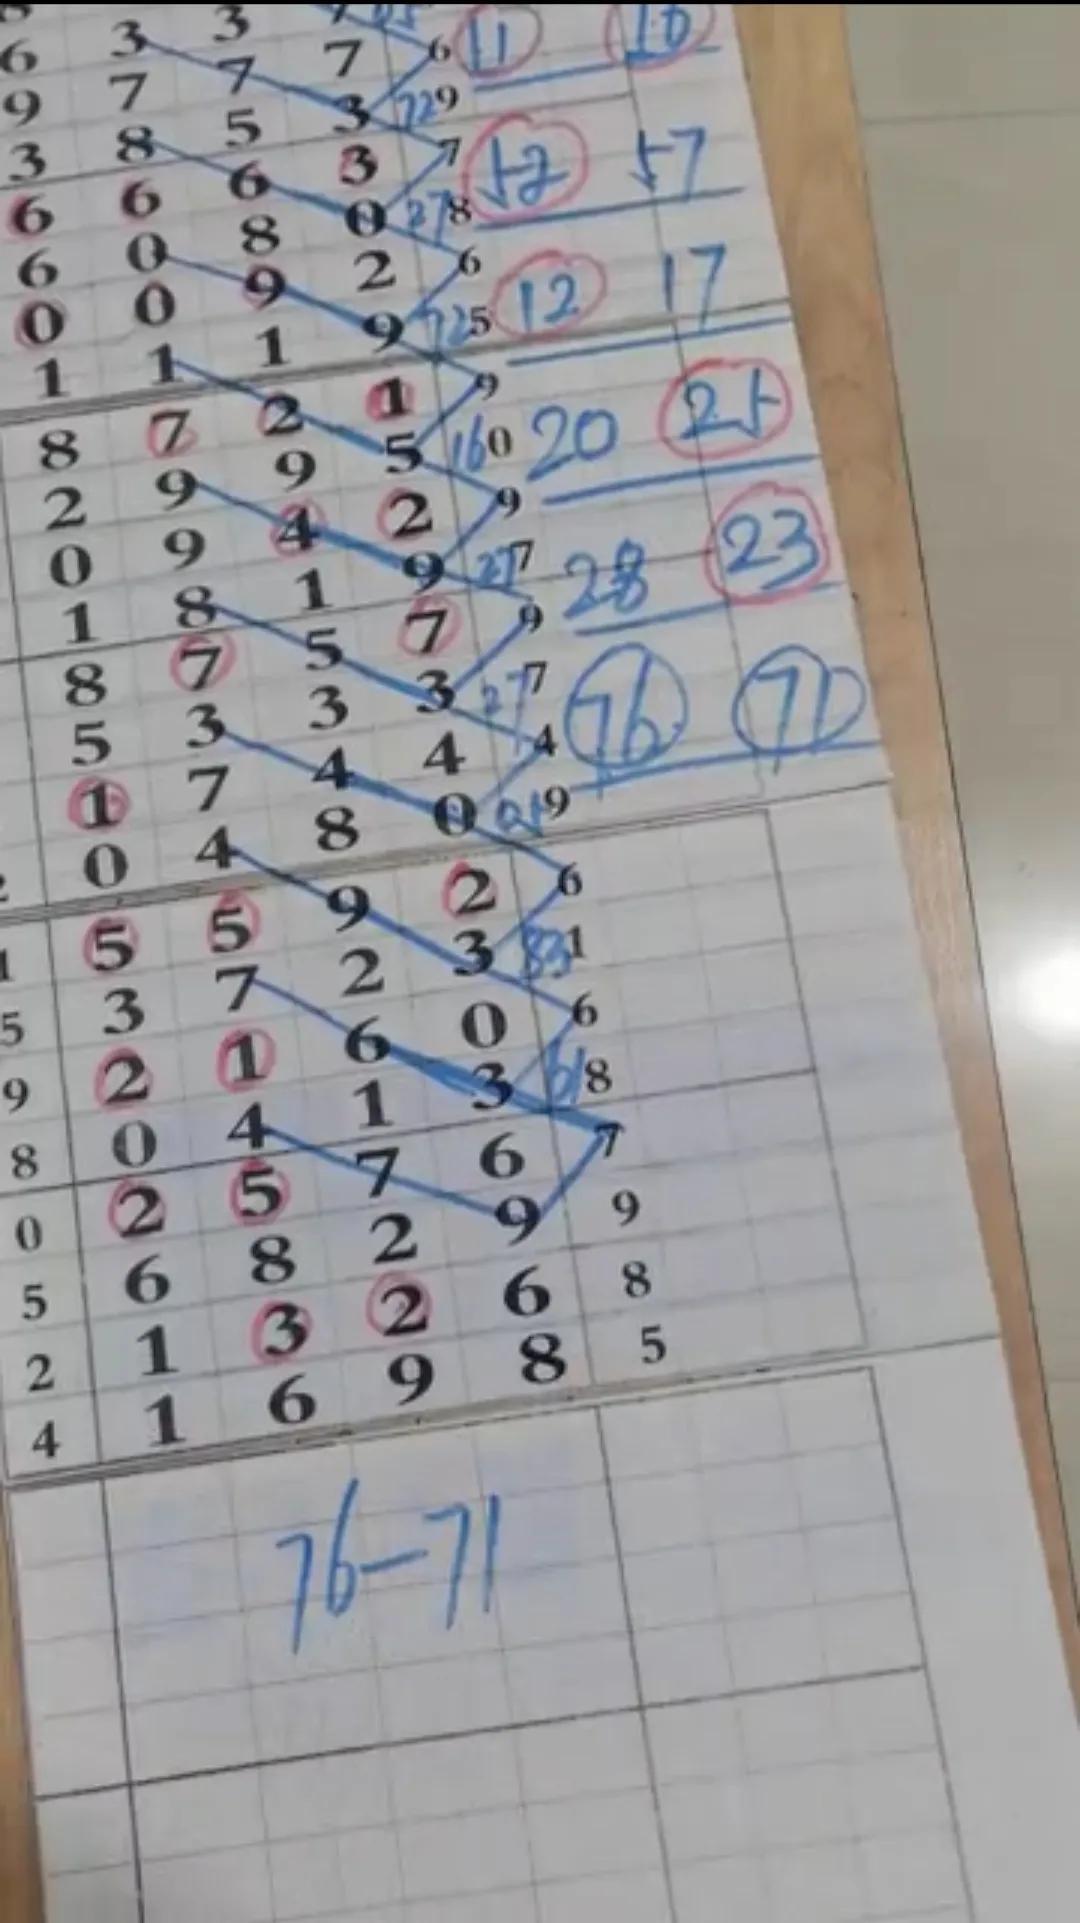 6 3 3 7 6 11 10
9 7 7 7 729
3 8 5 3 7 52 57
6 6 6 3 278
6 0 8 0 6 12 17
0 0 9 2 725
1 1 1 9 9
8 7 2 1 160 20 25
2 9 9 5 9
0 9 4 2 277 28 23
1 8 1 9 9
8 7 5 7 277 76 71
5 3 3 3 4
1 7 4 4 9
0 4 8 0 6
1 5 5 9 2 831
5 3 7 2 3 6
9 2 1 6 0 618
8 0 4 1 3 7
0 2 5 7 6 9
5 6 8 2 9 8
2 1 3 2 6 5
4 1 6 9 8
76-71